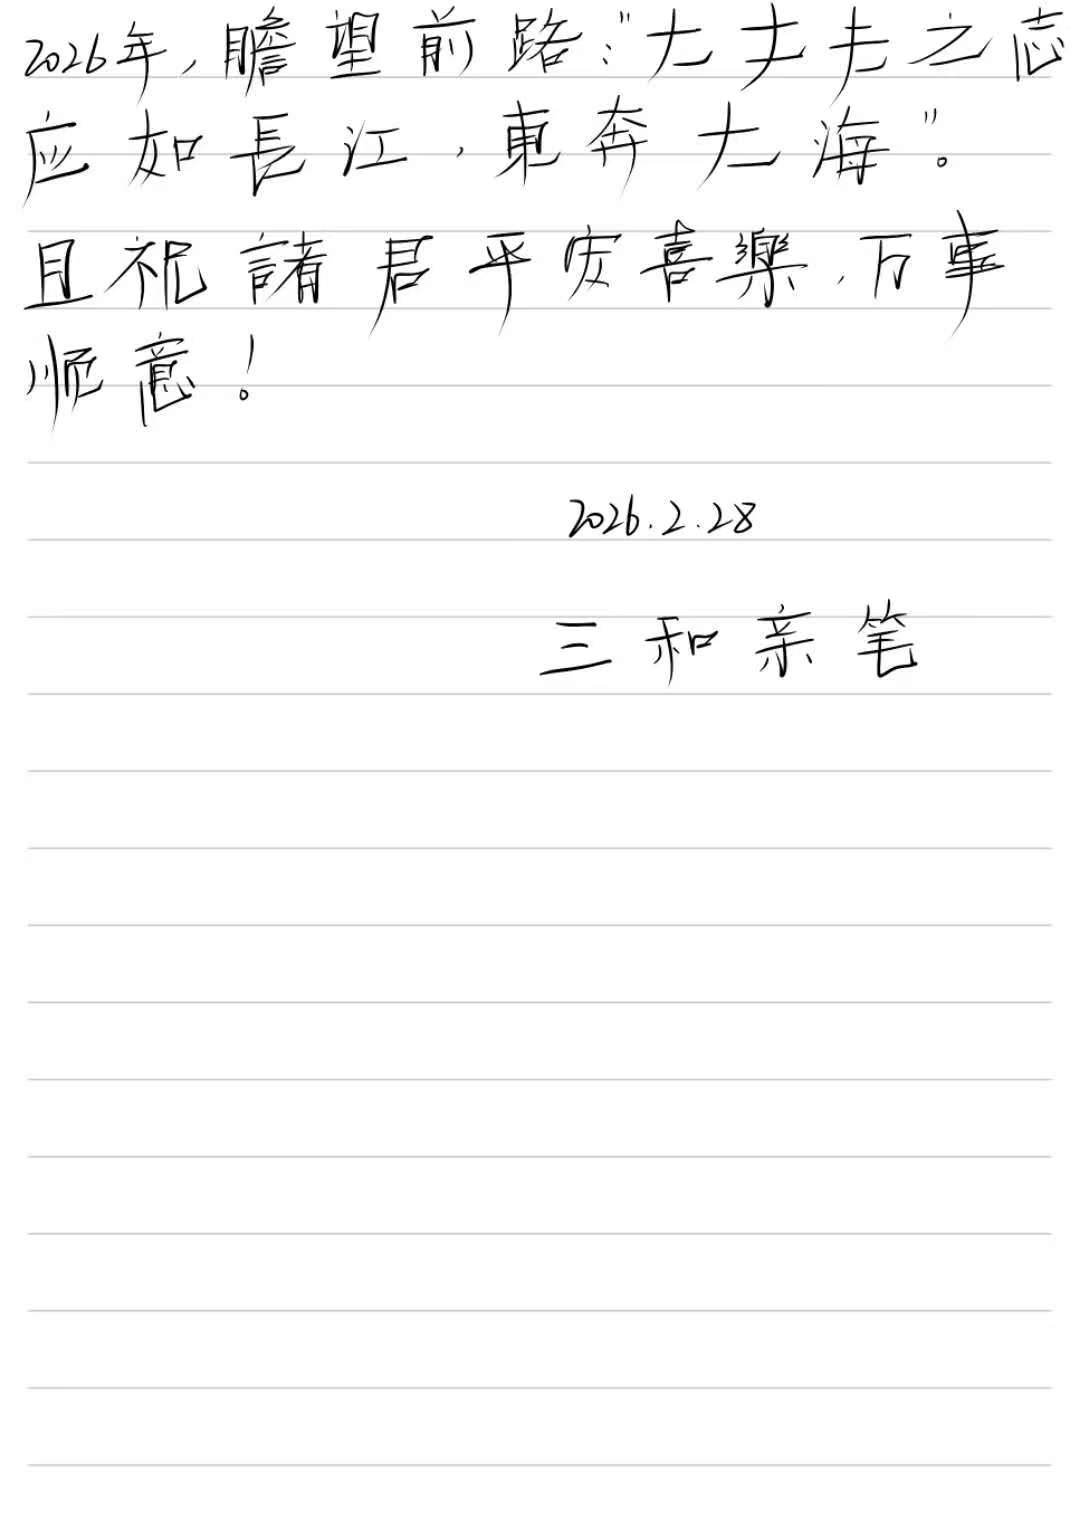 2026年,瞻望前路:"大丈夫之志
应如長江,東奔大海"。
且祝諸君平安喜樂,万事
顺意!
2026.2.28
三和亲笔